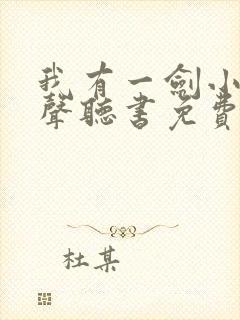 我有一劍小
聲聽書免費
杜某